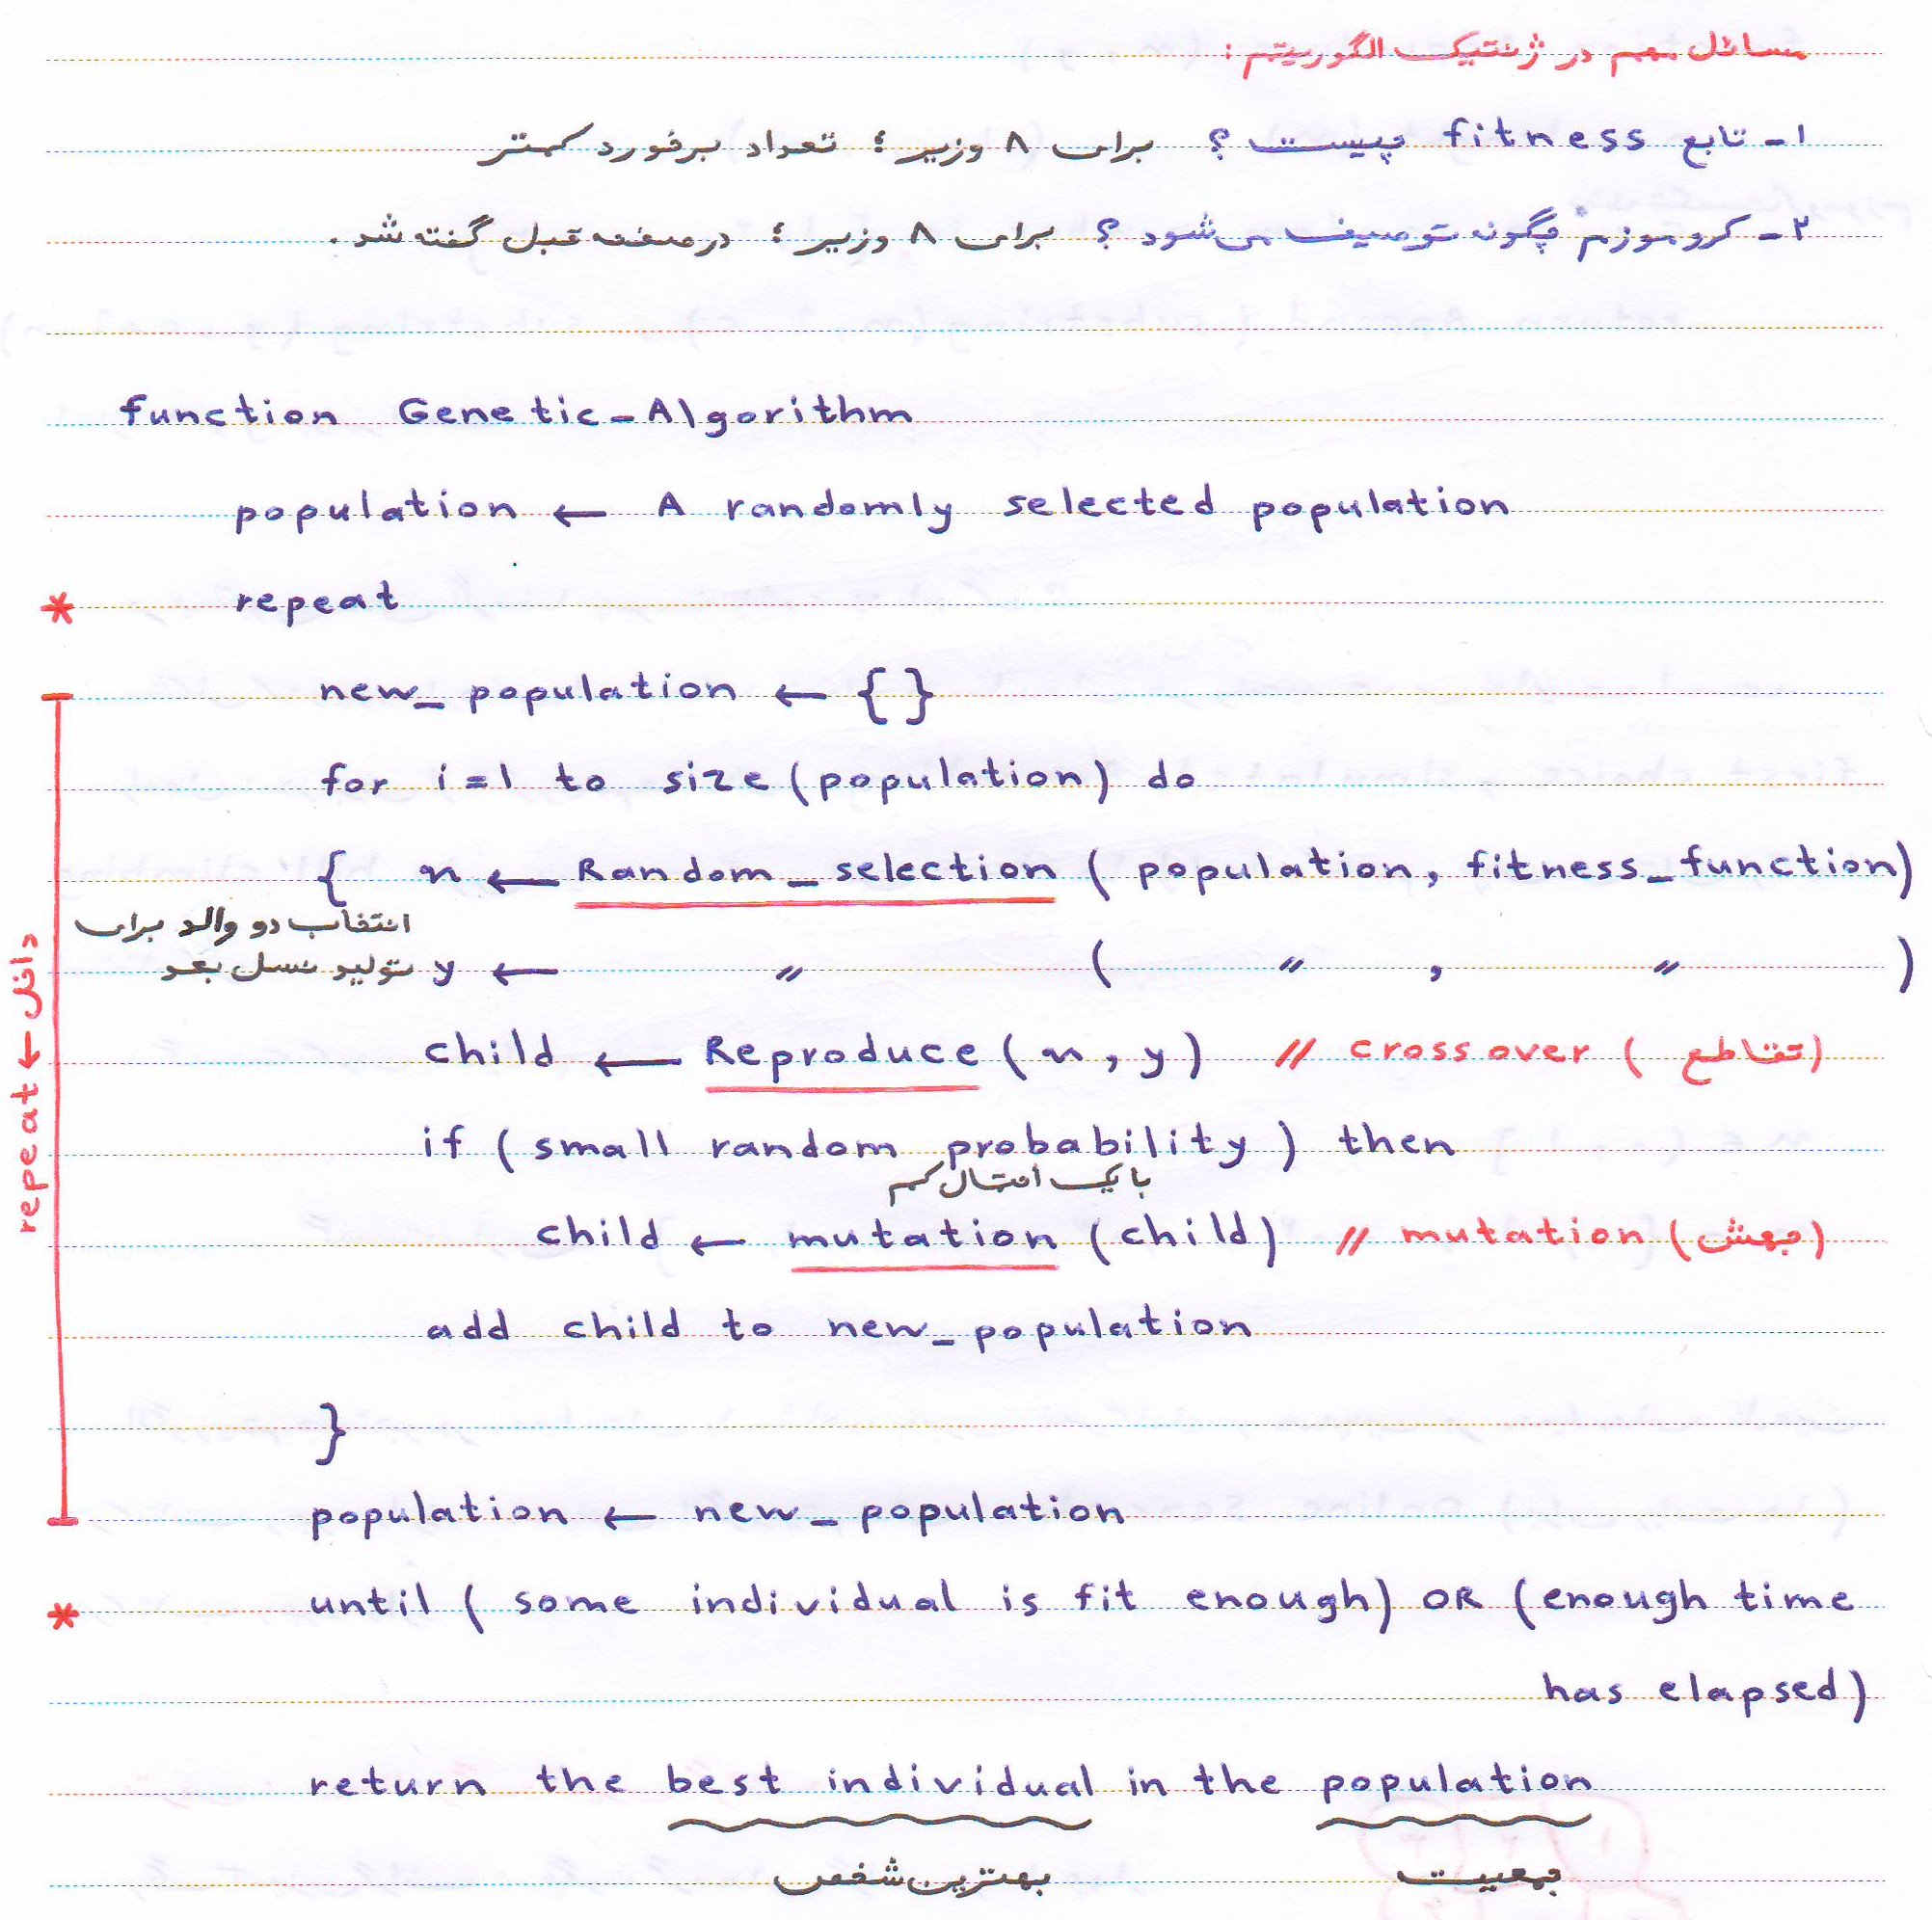 مسائل مهم در ژنتیک الگوریتم :
۱ - تابع fitness چیست ؟ برای ۸ وزیر ؛ تعداد برخورد کمتر
۲ - کروموزم چگونه توصیف می‌شود ؟ برای ۸ وزیر ؛ در صفحه قبل گفته شد .
function Genetic-Algorithm
population ← A randomly selected population
* repeat
new_population ← { }
for i=1 to size (population) do
{ x ← Random_selection ( population, fitness_function)
انتخاب دو والد برای
تولید نسل بعد
y ← 〃 ( 〃 , 〃 )
child ← Reproduce (x, y) // crossover (تقاطع)
if ( small random probability ) then
با یک احتمال کم
child ← mutation (child) // mutation (جهش)
add child to new_population
}
population ← new_population
داخل ← repeat
* until ( some individual is fit enough) OR (enough time
has elapsed)
return the best individual in the population
بهترین شخص
جمعیت